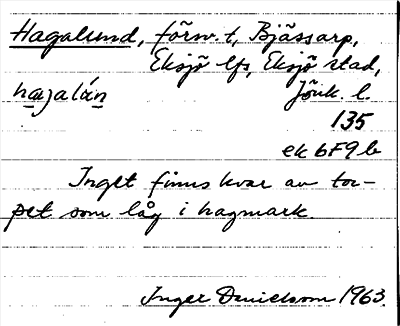 Hagalund, förr. t, Bjässarp,
Eksjö lfs, Eksjö stad,
hagalún Jönk. l.
135
ek 6F9b
Inget finns kvar av tor-
pet som låg i hagmark.
Inger Danielsson 1963